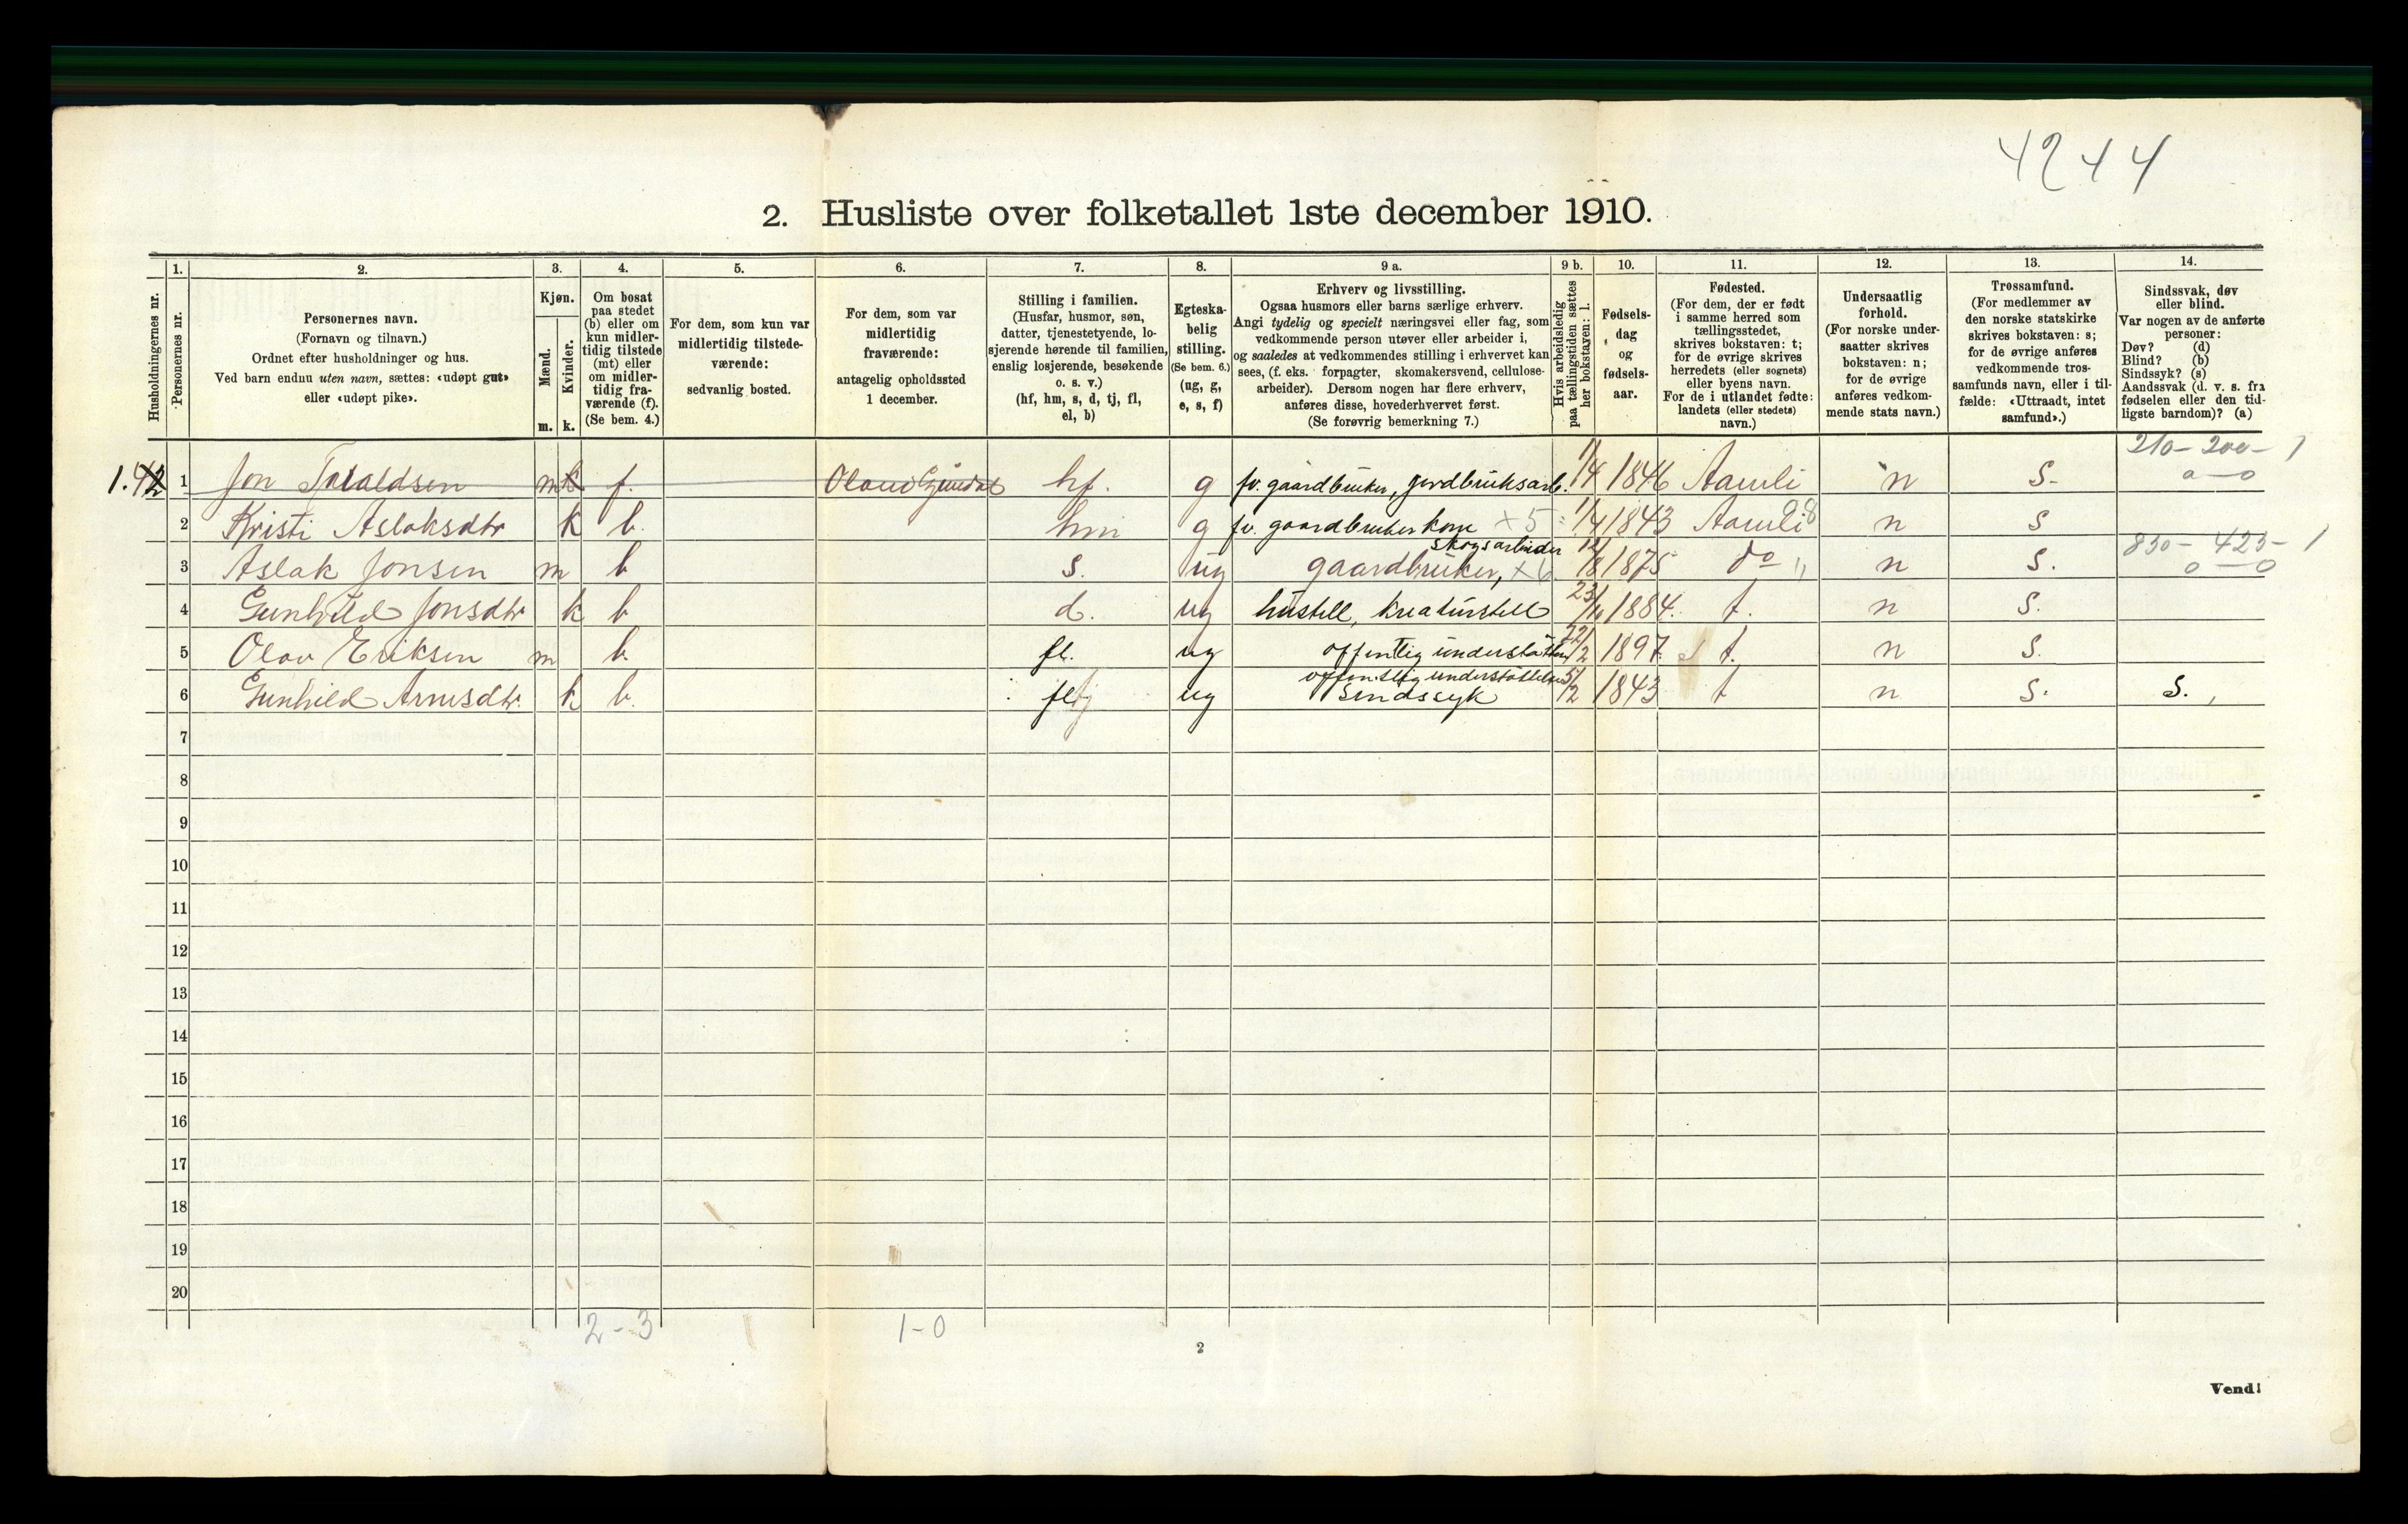 4244
2. Husliste over folketallet 1ste december 1910.
Husholdningernes nr.
1. Personernes nr.
2. Personernes navn.
(Fornavn og tilnavn.)
Ordnet efter husholdninger og hus.
Ved barn endnu uten navn, sættes: «udøpt gut»
eller «udøpt pike».
3. Kjøn.
Mænd. m.
Kvinder. k.
4. Om bosat
paa stedet
(b) eller om
kun midler-
tidig tilstede
(mt) eller
om midler-
tidig fra-
værende (f).
(Se bem. 4.)
5. For dem, som kun var
midlertidig tilstede-
værende:
sedvanlig bosted.
6. For dem, som var
midlertidig
fraværende:
antagelig opholdssted
1 december.
7. Stilling i familien.
(Husfar, husmor, søn,
datter, tjenestetyende, lo-
sjerende hørende til familien,
enslig losjerende, besøkende
o. s. v.)
(hf, hm, s, d, tj, fl,
el, b)
8. Egteska-
belig
stilling.
(Se bem. 6.)
(ug, g,
e, s, f)
9 a. Erhverv og livsstilling.
Ogsaa husmors eller barns særlige erhverv.
Angi tydelig og specielt næringsvei eller fag, som
vedkommende person utøver eller arbeider i,
og saaledes at vedkommendes stilling i erhvervet kan
sees, (f. eks. forpagter, skomakersvend, cellulose-
arbeider). Dersom nogen har flere erhverv,
anføres disse, hovederhvervet først.
(Se forøvrig bemerkning 7.)
9 b. Hvis arbeidsledig
paa tællingstiden sættes
her bokstaven: l.
10. Fødsels-
dag
og
fødsels-
aar.
11. Fødested.
(For dem, der er født
i samme herred som
tællingsstedet,
skrives bokstaven: t;
for de øvrige skrives
herredets (eller sognets)
eller byens navn.
For de i utlandet fødte:
landets (eller stedets)
navn.)
12. Undersaatlig
forhold.
(For norske under-
saatter skrives
bokstaven: n;
for de øvrige
anføres vedkom-
mende stats navn.)
13. Trossamfund.
(For medlemmer av
den norske statskirke
skrives bokstaven: s;
for de øvrige anføres
vedkommende tros-
samfunds navn, eller i til-
fælde: «Uttraadt, intet
samfund».)
14. Sindssvak, døv
eller blind.
Var nogen av de anførte
personer:
Døv? (d)
Blind? (b)
Sindssyk? (s)
Aandssvak (d. v. s. fra
fødselen eller den tid-
ligste barndom)? (a)
210-200-1
0-0
1 Jon m f. hf. g fv. gaardbruker, jordbruksarb. 1/4 1846 Aamli n S.
2 Kristi Aslaksdtr k b. hm g fv. gaardbrukerkone x5 1/4 1843 Aamli n S
830-425-1
0-0
skogsarbeider
3 Aslak Jonsen m b s. ug gaardbruker, x6 12/8 1875 do n S.
4 Gunhild Jonsdtr k b d. ug husstell, kreaturstell 23/10 1884 t. n S.
5 Olav Eriksen m b. fl. ug offentlig understøttelse 22/2 1897 t. n S.
offentlig understøttelse
6 Gunhild k b. fl ug Sindssyk 5/2 1843 t n S. S.
7
8
9
10
11
12
13
14
15
16
17
18
19
20
2-3 1-0
2
Vend!